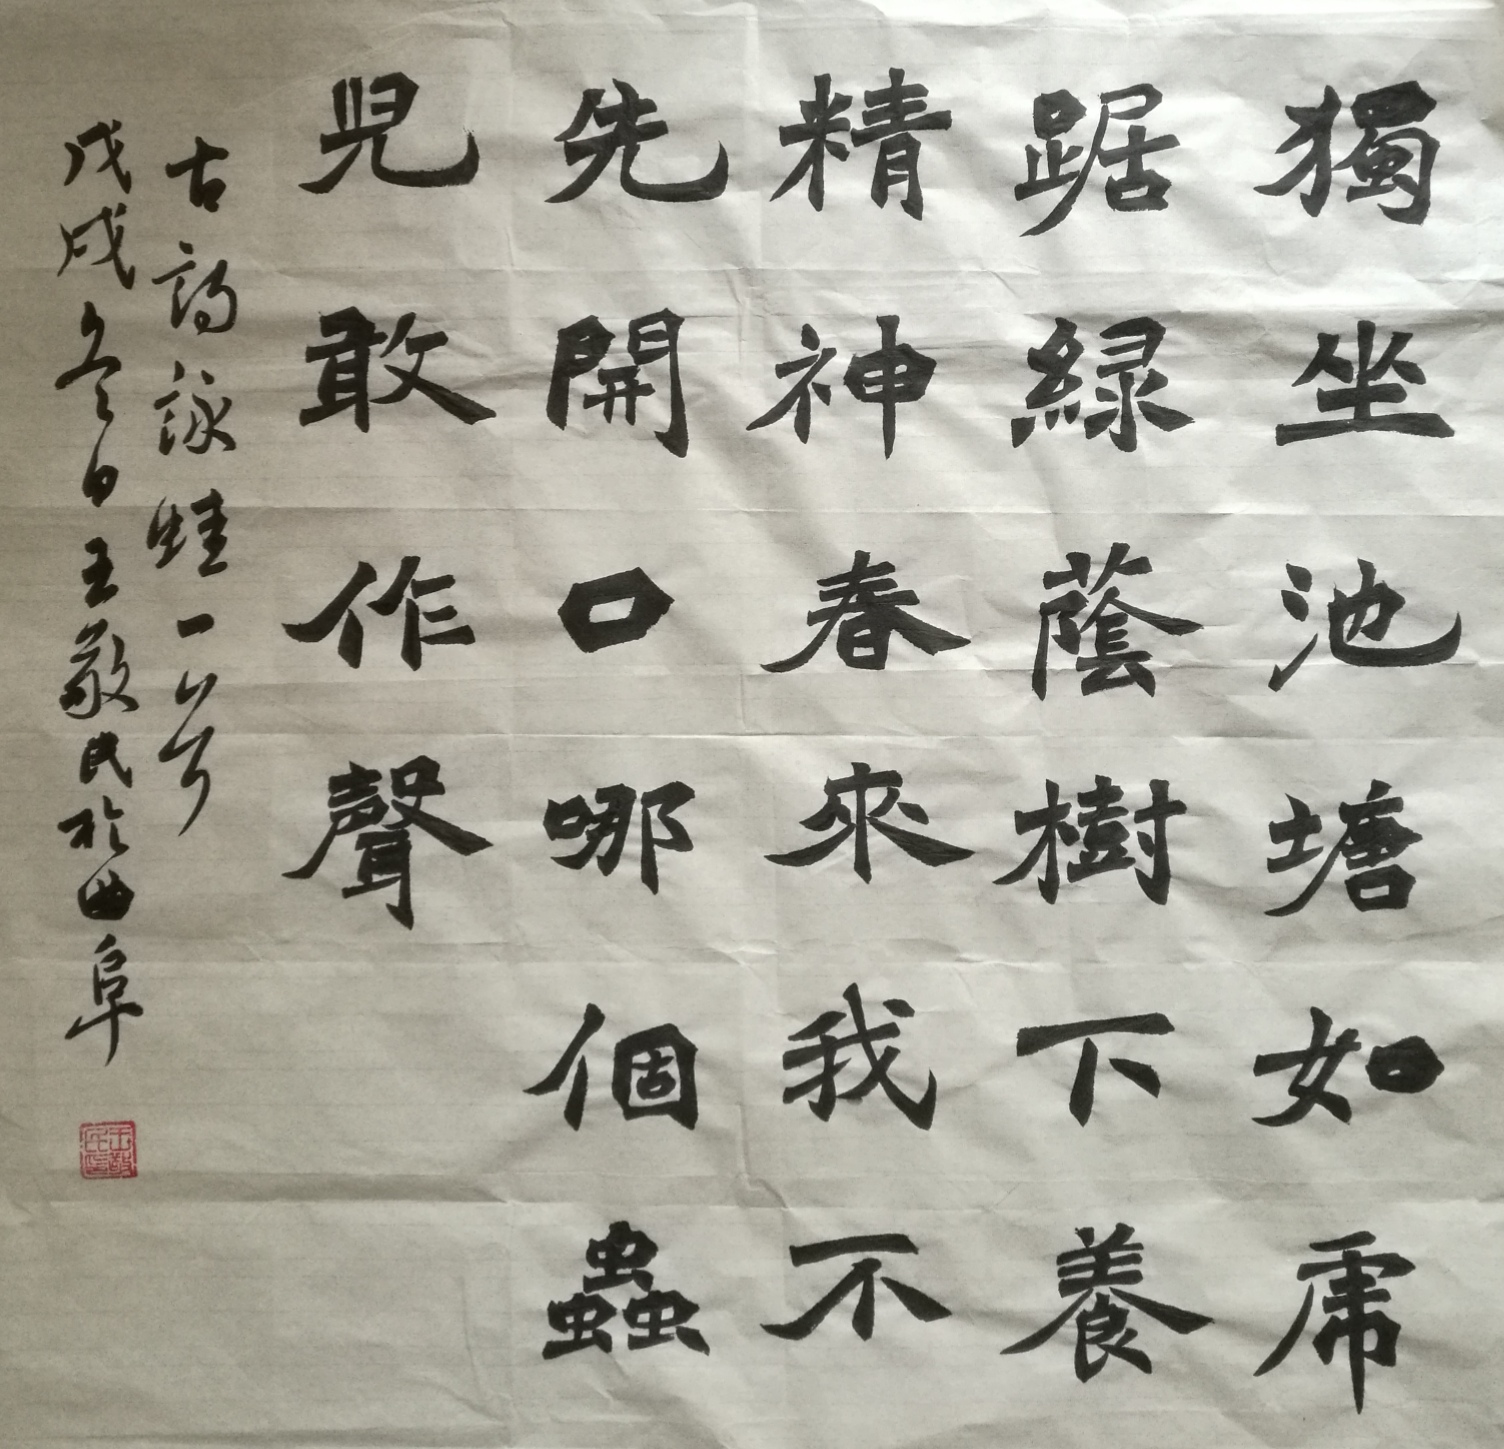 獨坐池塘如虎
踞綠蔭樹下養
精神春來我不
先開口哪個蟲
兒敢作聲
古詩詠蛙一首
戊戌冬日王敬民於曲阜
王敬民印